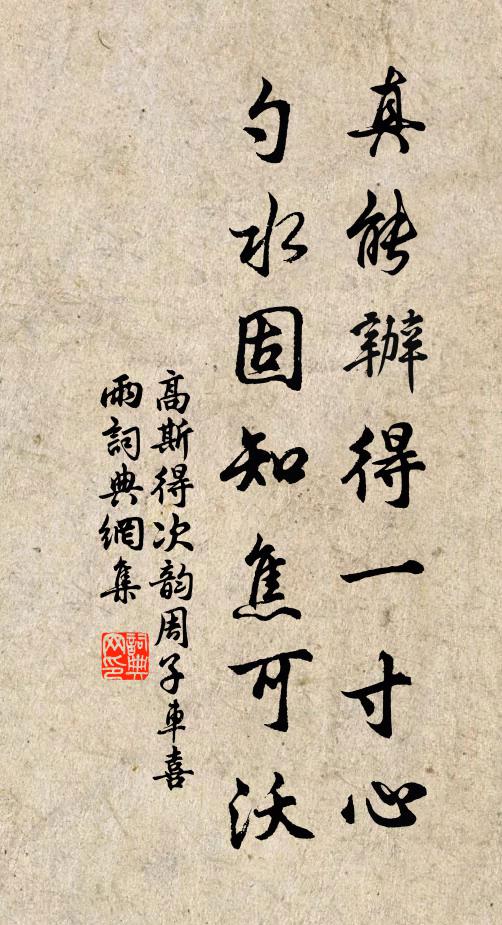 真能辦得一寸心
勺水固知焦可沃
高斯得次韵周子車喜
雨詞典網集
詞典
网印